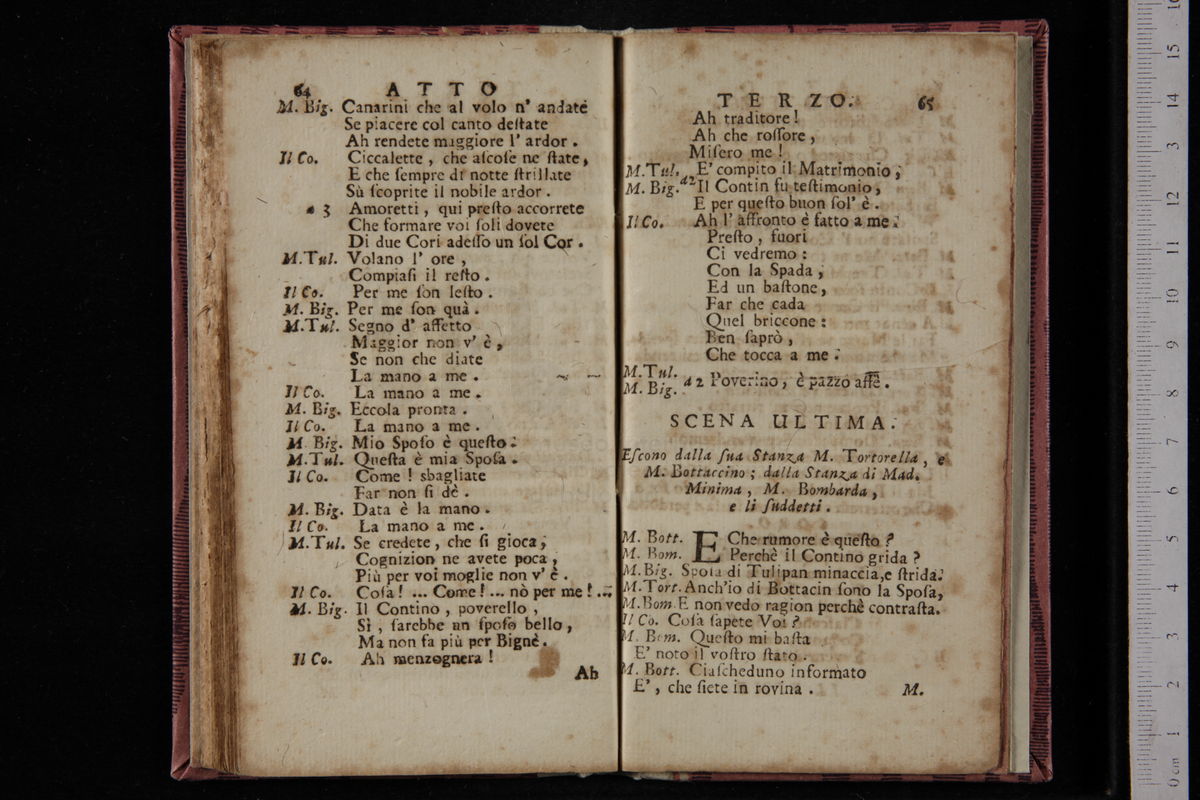 64 ATTO
M. Big. Canarini che al volo n' andate
Se piacere col canto deſtate
Ah rendete maggiore l' ardor .
Il Co. Ciccalette , che aſcoſe ne ſtate,
E che ſempre di notte ſtrillate
Sù ſcoprite il nobile ardor .
a 3 Amoretti , qui preſto accorrete
Che formare voi ſoli dovete
Di due Cori adeſſo un ſol Cor .
M.Tul. Volano l' ore ,
Compiaſi il reſto .
Il Co. Per me ſon leſto .
M. Big. Per me ſon quà .
M.Tul. Segno d' affetto
Maggior non v' è ,
Se non che diate
La mano a me .
Il Co. La mano a me .
M. Big. Eccola pronta .
Il Co. La mano a me .
M. Big. Mio Spoſo è queſto .
M.Tul. Queſta è mia Spoſa .
Il Co. Come ! sbagliate
Far non ſi dè .
M. Big. Data è la mano .
Il Co. La mano a me .
M.Tul. Se credete , che ſi gioca ,
Cognizion ne avete poca ,
Più per voi moglie non v' è .
Il Co. Coſa ! ... Come ! ... nò per me ! ...
M. Big. Il Contino , poverello ,
Sì , ſarebbe un ſpoſo bello ,
Ma non fa più per Bignè .
Il Co. Ah menzognera !
Ah
TERZO. 65
Ah traditore !
Ah che roſſore ,
Miſero me !
M.Tul. E' compito il Matrimonio ,
M. Big. a2 Il Contin fu teſtimonio ,
E per queſto buon ſol' è .
Il Co. Ah l' affronto è fatto a me .
Preſto , fuori
Ci vedremo :
Con la Spada ,
Ed un baſtone ,
Far che cada
Quel briccone :
Ben ſaprò ,
Che tocca a me .
M.Tul.
M. Big. a 2 Poverino , è pazzo affè .
SCENA ULTIMA.
Eſcono dalla ſua Stanza M. Tortorella , e
M. Bottaccino ; dalla Stanza di Mad.
Minima , M. Bombarda ,
e li ſuddetti .
M. Bott. E Che rumore è queſto ?
M. Bom. Perchè il Contino grida ?
M. Big. Spoſa di Tulipan minaccia,e ſtrida.
M. Tort. Anch'io di Bottacin ſono la Spoſa,
M.Bom. E non vedo ragion perchè contraſta.
Il Co. Coſa ſapete Voi ?
M. Bom. Queſto mi baſta
E' noto il voſtro ſtato .
M. Bott. Ciaſcheduno informato
E' , che ſiete in rovina .
M.
15
14
13
12
11
10
9
8
7
6
5
4
3
2
1
0 cm